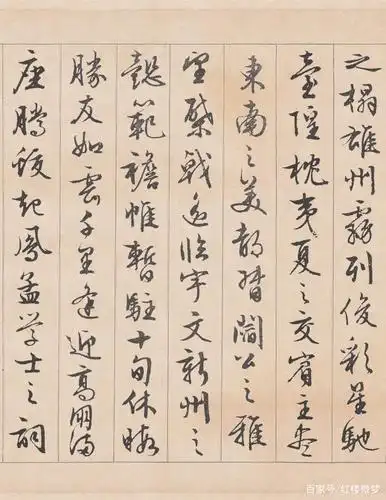 之榻雄州霧列俊彩星馳
臺隍枕夷夏之交賓主盡
東南之美都督閻公之雅
望棨戟遙臨宇文新州之
懿範襜帷暫駐十旬休暇
勝友如雲千里逢迎高朋滿
座騰蛟起鳳孟学士之詞
百家号/红楼微梦